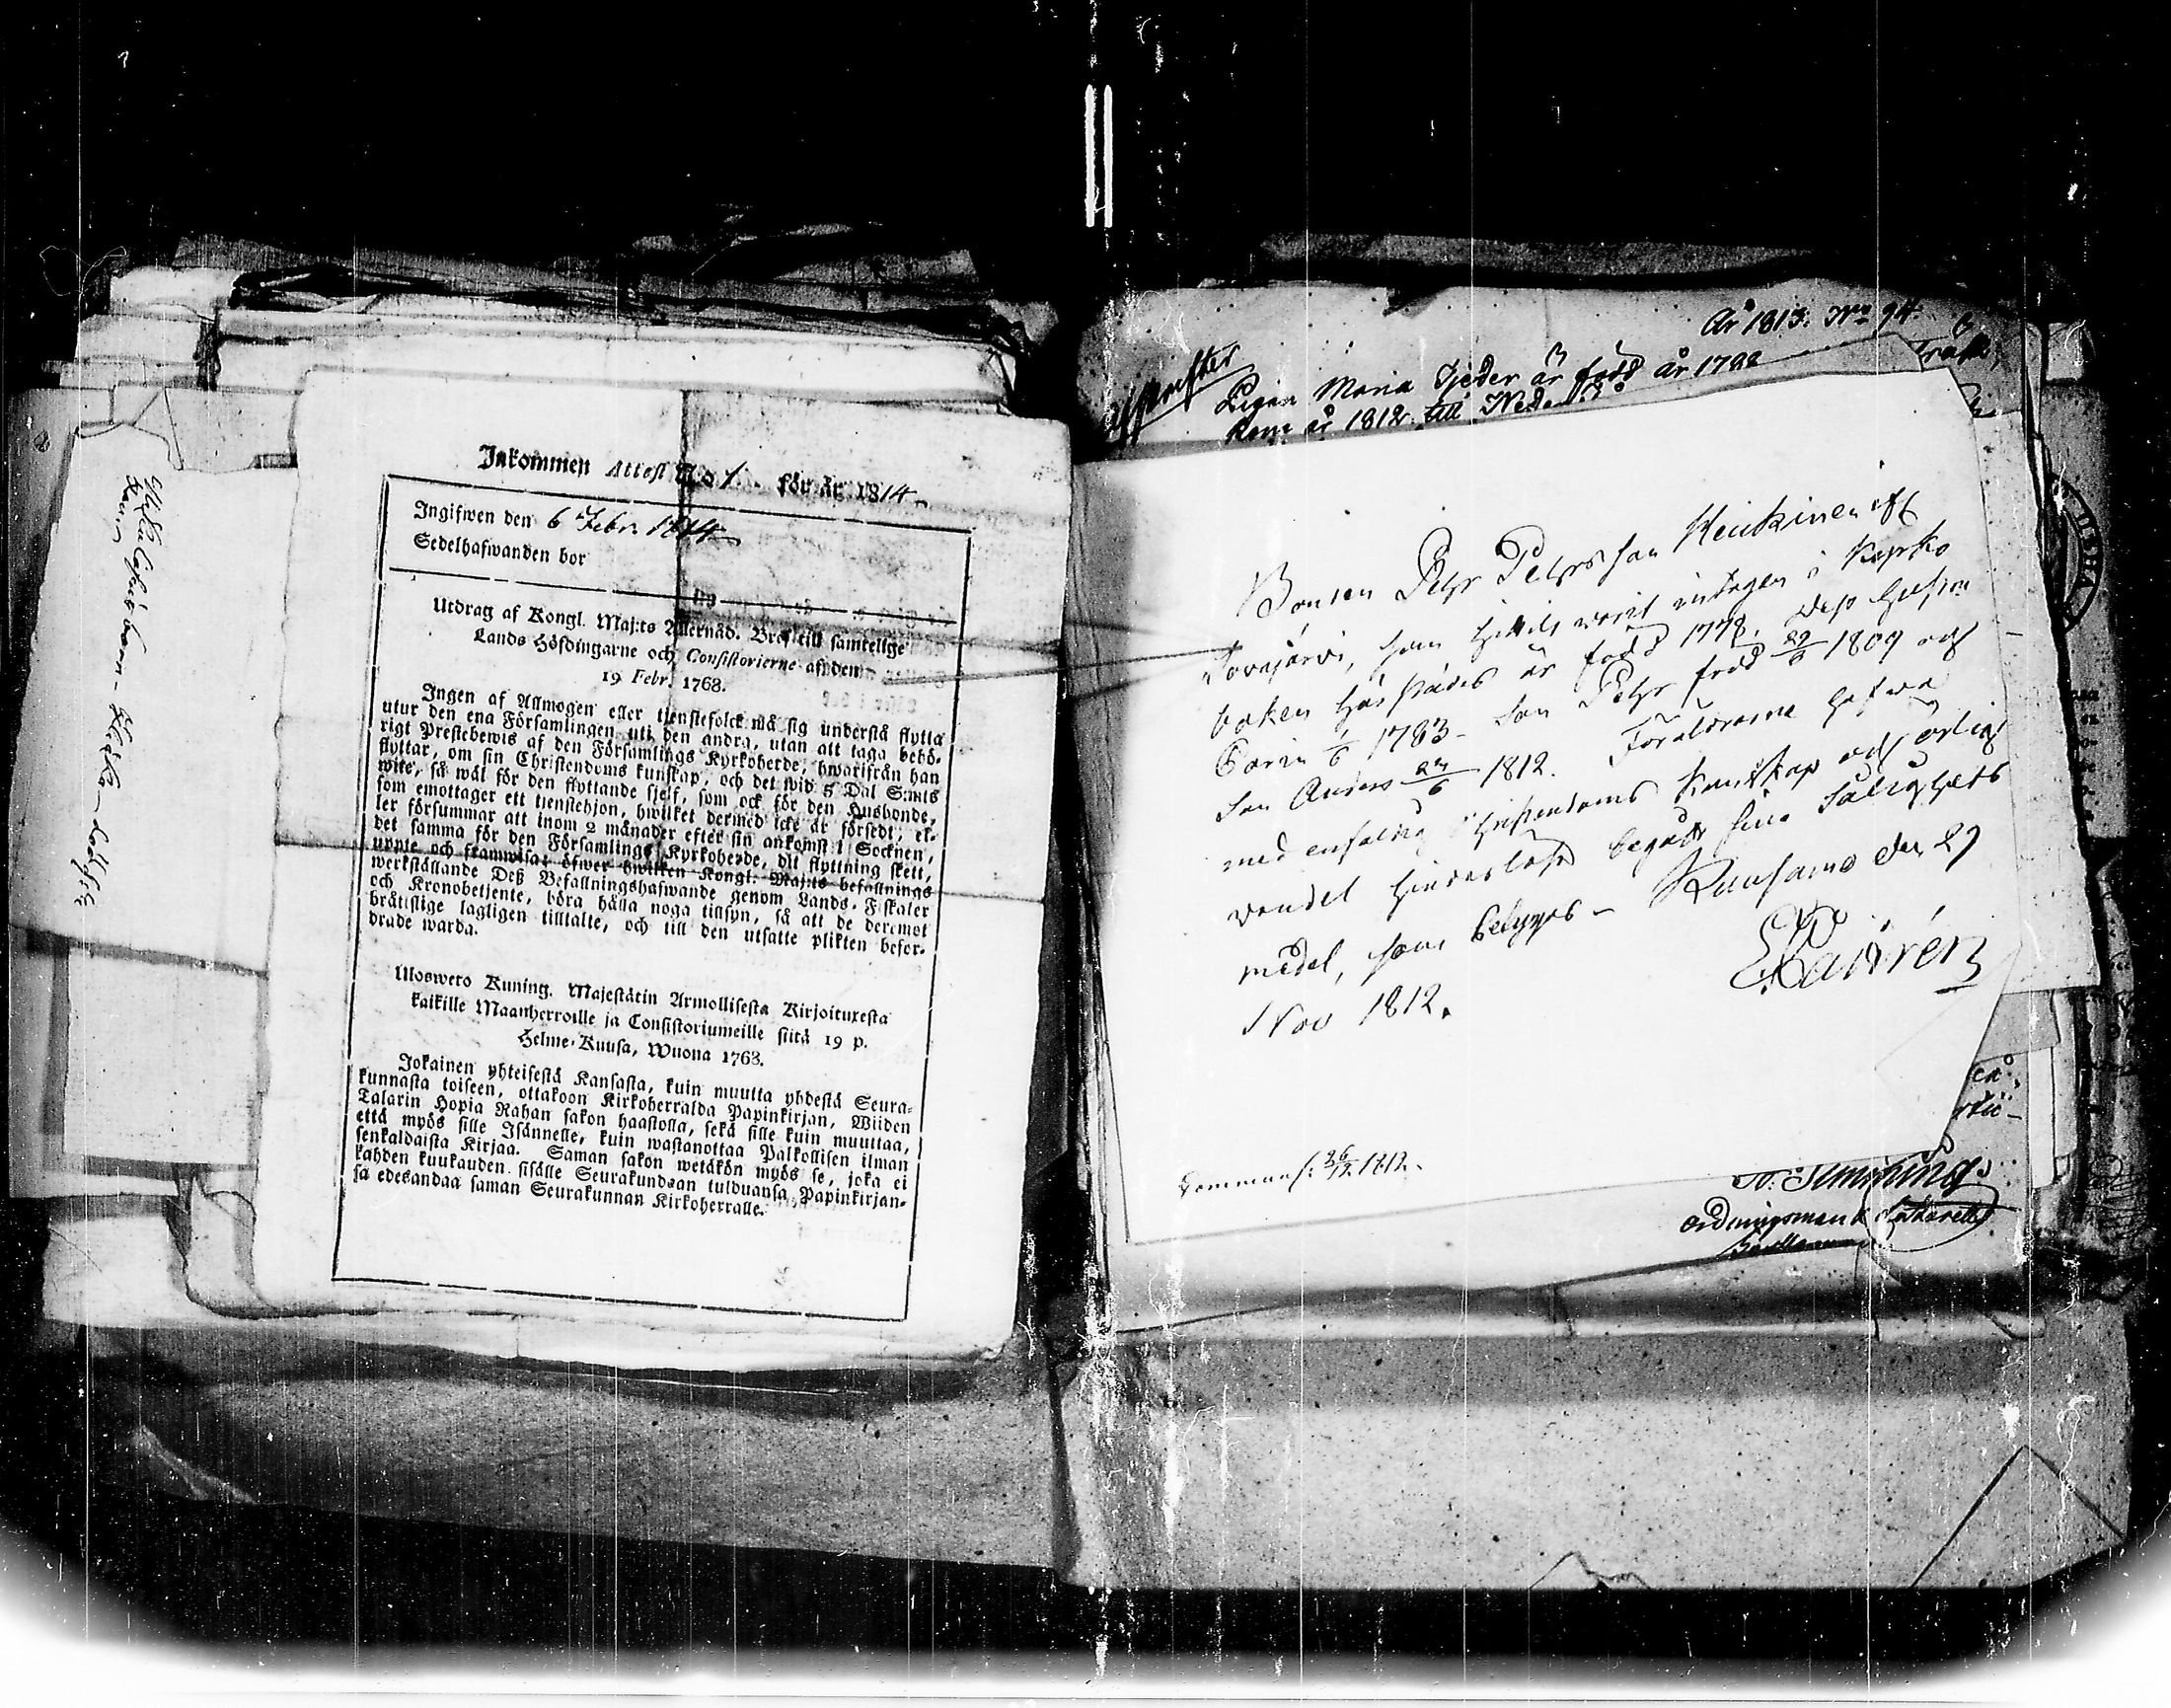 Inkommen Attest No 1. för år 1814
Ingifwen den 6 Febr. 1814
Sedelhafwanden bor
Utdrag af Kongl. Maj:ts Allernåd. Bref till samtelige
Lands Höfdingarne och Consistorierne af den
19 Febr. 1768.
Ingen af Allmogen eller tjenstefolck må sig understå flytta
utur den ena Församlingen uti den andra, utan att taga behö-
rigt Prestebewis af den Församlings Kyrkoherde, hwarifrån han
flyttar, om sin Christendoms kunskap, och det wid 5 Dal S:mts
wite, så wäl för den flyttande sjelf, som ock för den Husbonde,
som emottager ett tjenstehjon, hwilket dermed icke är försedt, el-
ler försummar att inom 2 månader efter sin ankomst i Socknen,
det samma för den Församlings Kyrkoherde, dit flyttning skett,
uppte och framwisa; öfwer hwilken Kongl. Maj:ts befallnings
werkställande Deß Befallningshafwande genom Lands-Fiskaler
och Kronobetjente, böra hålla noga tillsyn, så att de deremot
bråtislige lagligen tilltalte, och till den utsatte plikten befor-
drade warda.
Uloswero Kuning. Majestätin Armollisesta Kirjoituxesta
kaikille Maanherroille ja Consistoriumeille siitä 19 p.
Helme-Kuusa, Wuona 1768.
Jokainen yhteisestä Kansasta, kuin muutta yhdestä Seura-
kunnasta toiseen, ottakoon Kirkoherralda Papinkirjan, Wiiden
Talarin Hopia Rahan sakon haastolla, sekä sille kuin muuttaa,
että myös sille Isännelle, kuin wastanottaa Palkollisen ilman
senkaldaista Kirjaa. Saman sakon wetäkön myös se, joka ei
kahden kuukauden sisälle Seurakundaan tulduansa Papinkirjan-
sa edesandaa saman Seurakunnan Kirkoherralle.
År 1813. No 94
Pigan Maria Tjeder är född år 1788
kom år 1812 till
Bonden Petr Petersson Heikinen
som hittils warit intagen i Kyrko
boken härstädes är född 1778. Dess Hustru
Carin 1/6 1783 - Son Petr född 29/6 1809 och
Son Anders 24/6 1812. Föräldrarne hafwa
med enfaldig Christendoms Kunskap och ärligt
vandel hinderlöst begått sina Salighets
medel, som betygas - Kuusamo den 29
Nov 1812.
26/12 1812.
ordningsman